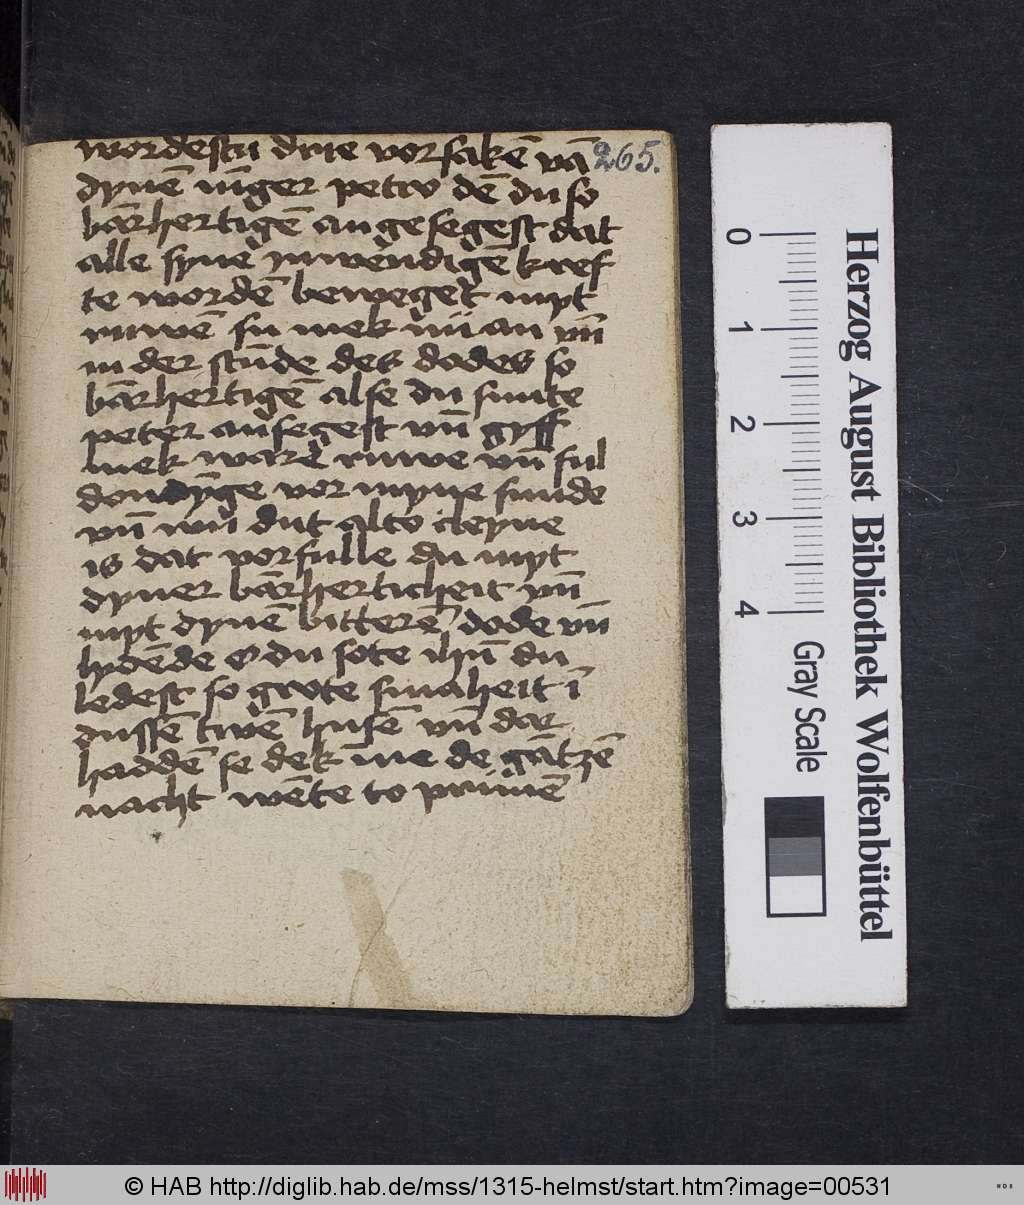 wordestu drie vorsakē vā 265.
dynē iūger petro dē du so
bārhertigē angesegest dat
alle syne ynwendigē kref
te wordē beweget myt
ruwē su mek nu an vn̄
in der stūde des dodes so
bārhertigē alse du sunte
peter ansegest vn̄ gyff
mek ware ruwe vn̄ ful
donynge vor myne sunde
vn̄ wū dut alto cleyne
is dat vorfulle du myt
dyner bārherticheit vn̄
myt dynē bitterē dode vn̄
lydēde O du sote ihū du
ledest so grote smaheit ī
dussē twē husē vn̄ dar
haddē se dek īne de gātzē
nacht wēte to prīmē
Herzog August Bibliothek Wolfenbüttel
0 1 2 3 4
Gray Scale
© HAB http://diglib.hab.de/mss/1315-helmst/start.htm?image=00531